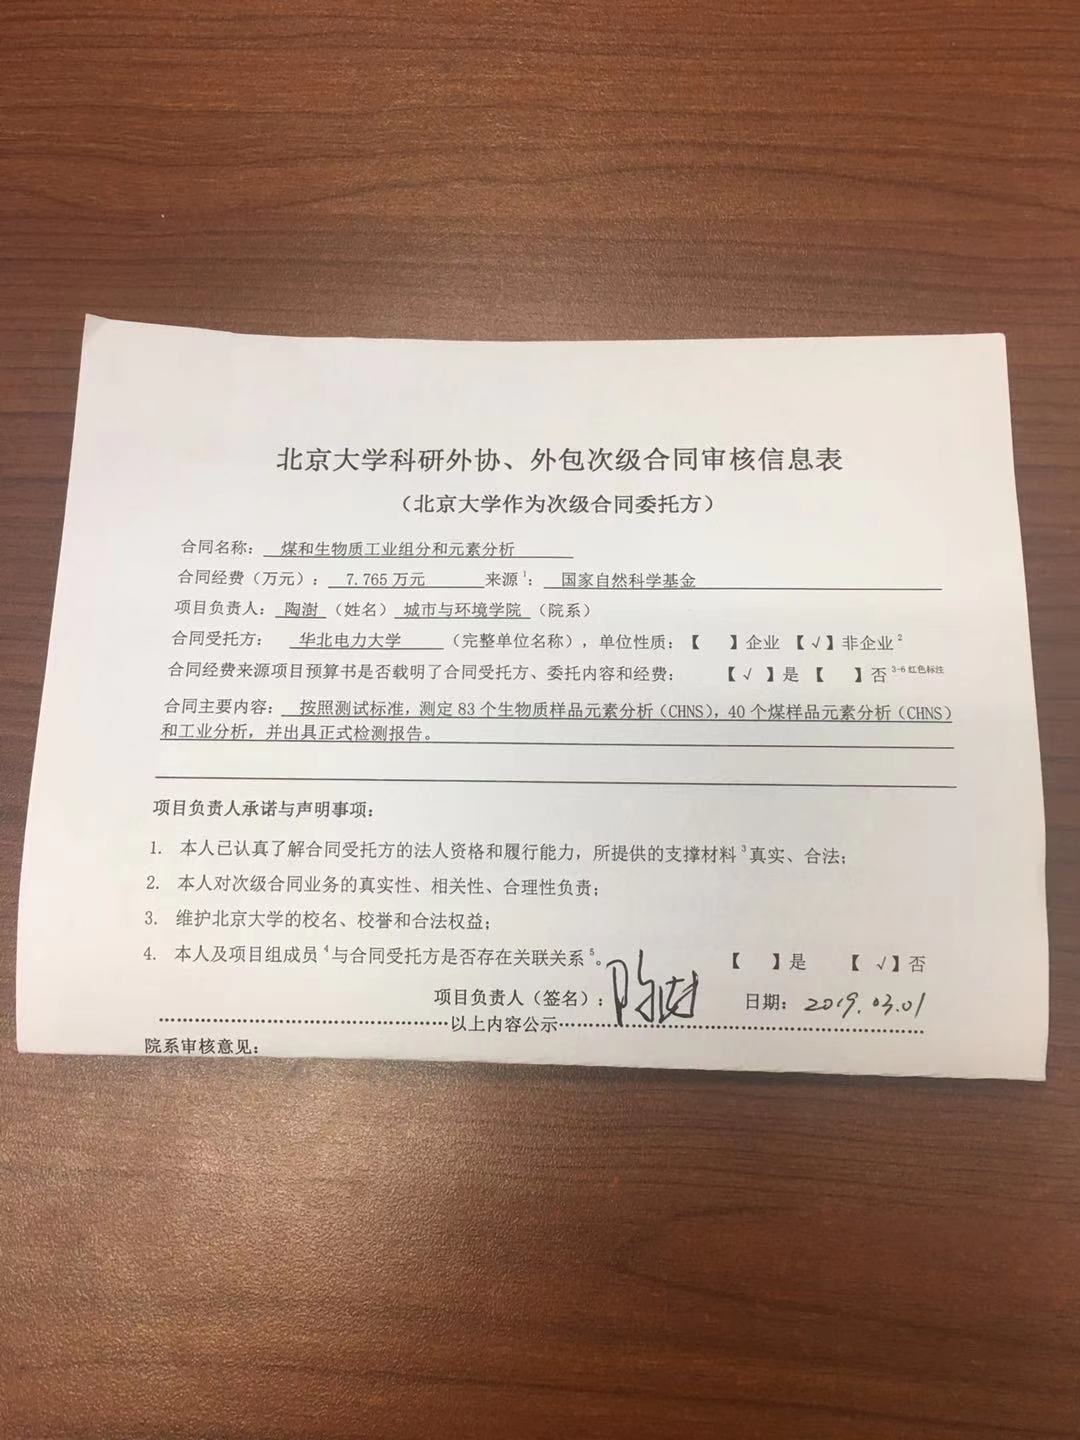 北京大学科研外协、外包次级合同审核信息表
（北京大学作为次级合同委托方）
合同名称： 煤和生物质工业组分和元素分析
合同经费（万元）： 7.765 万元 来源1： 国家自然科学基金
项目负责人： 陶澍 （姓名） 城市与环境学院 （院系）
合同受托方： 华北电力大学 （完整单位名称），单位性质：【 】企业 【√】非企业2
合同经费来源项目预算书是否载明了合同受托方、委托内容和经费： 【√ 】是 【 】否 3-6 红色标注
合同主要内容： 按照测试标准，测定 83 个生物质样品元素分析（CHNS），40 个煤样品元素分析（CHNS）
和工业分析，并出具正式检测报告。
项目负责人承诺与声明事项：
1. 本人已认真了解合同受托方的法人资格和履行能力，所提供的支撑材料3真实、合法；
2. 本人对次级合同业务的真实性、相关性、合理性负责；
3. 维护北京大学的校名、校誉和合法权益；
4. 本人及项目组成员4与合同受托方是否存在关联关系5。 【 】是 【 √】否
项目负责人（签名）：陶澍 日期：2019.03.01
以上内容公示
院系审核意见：